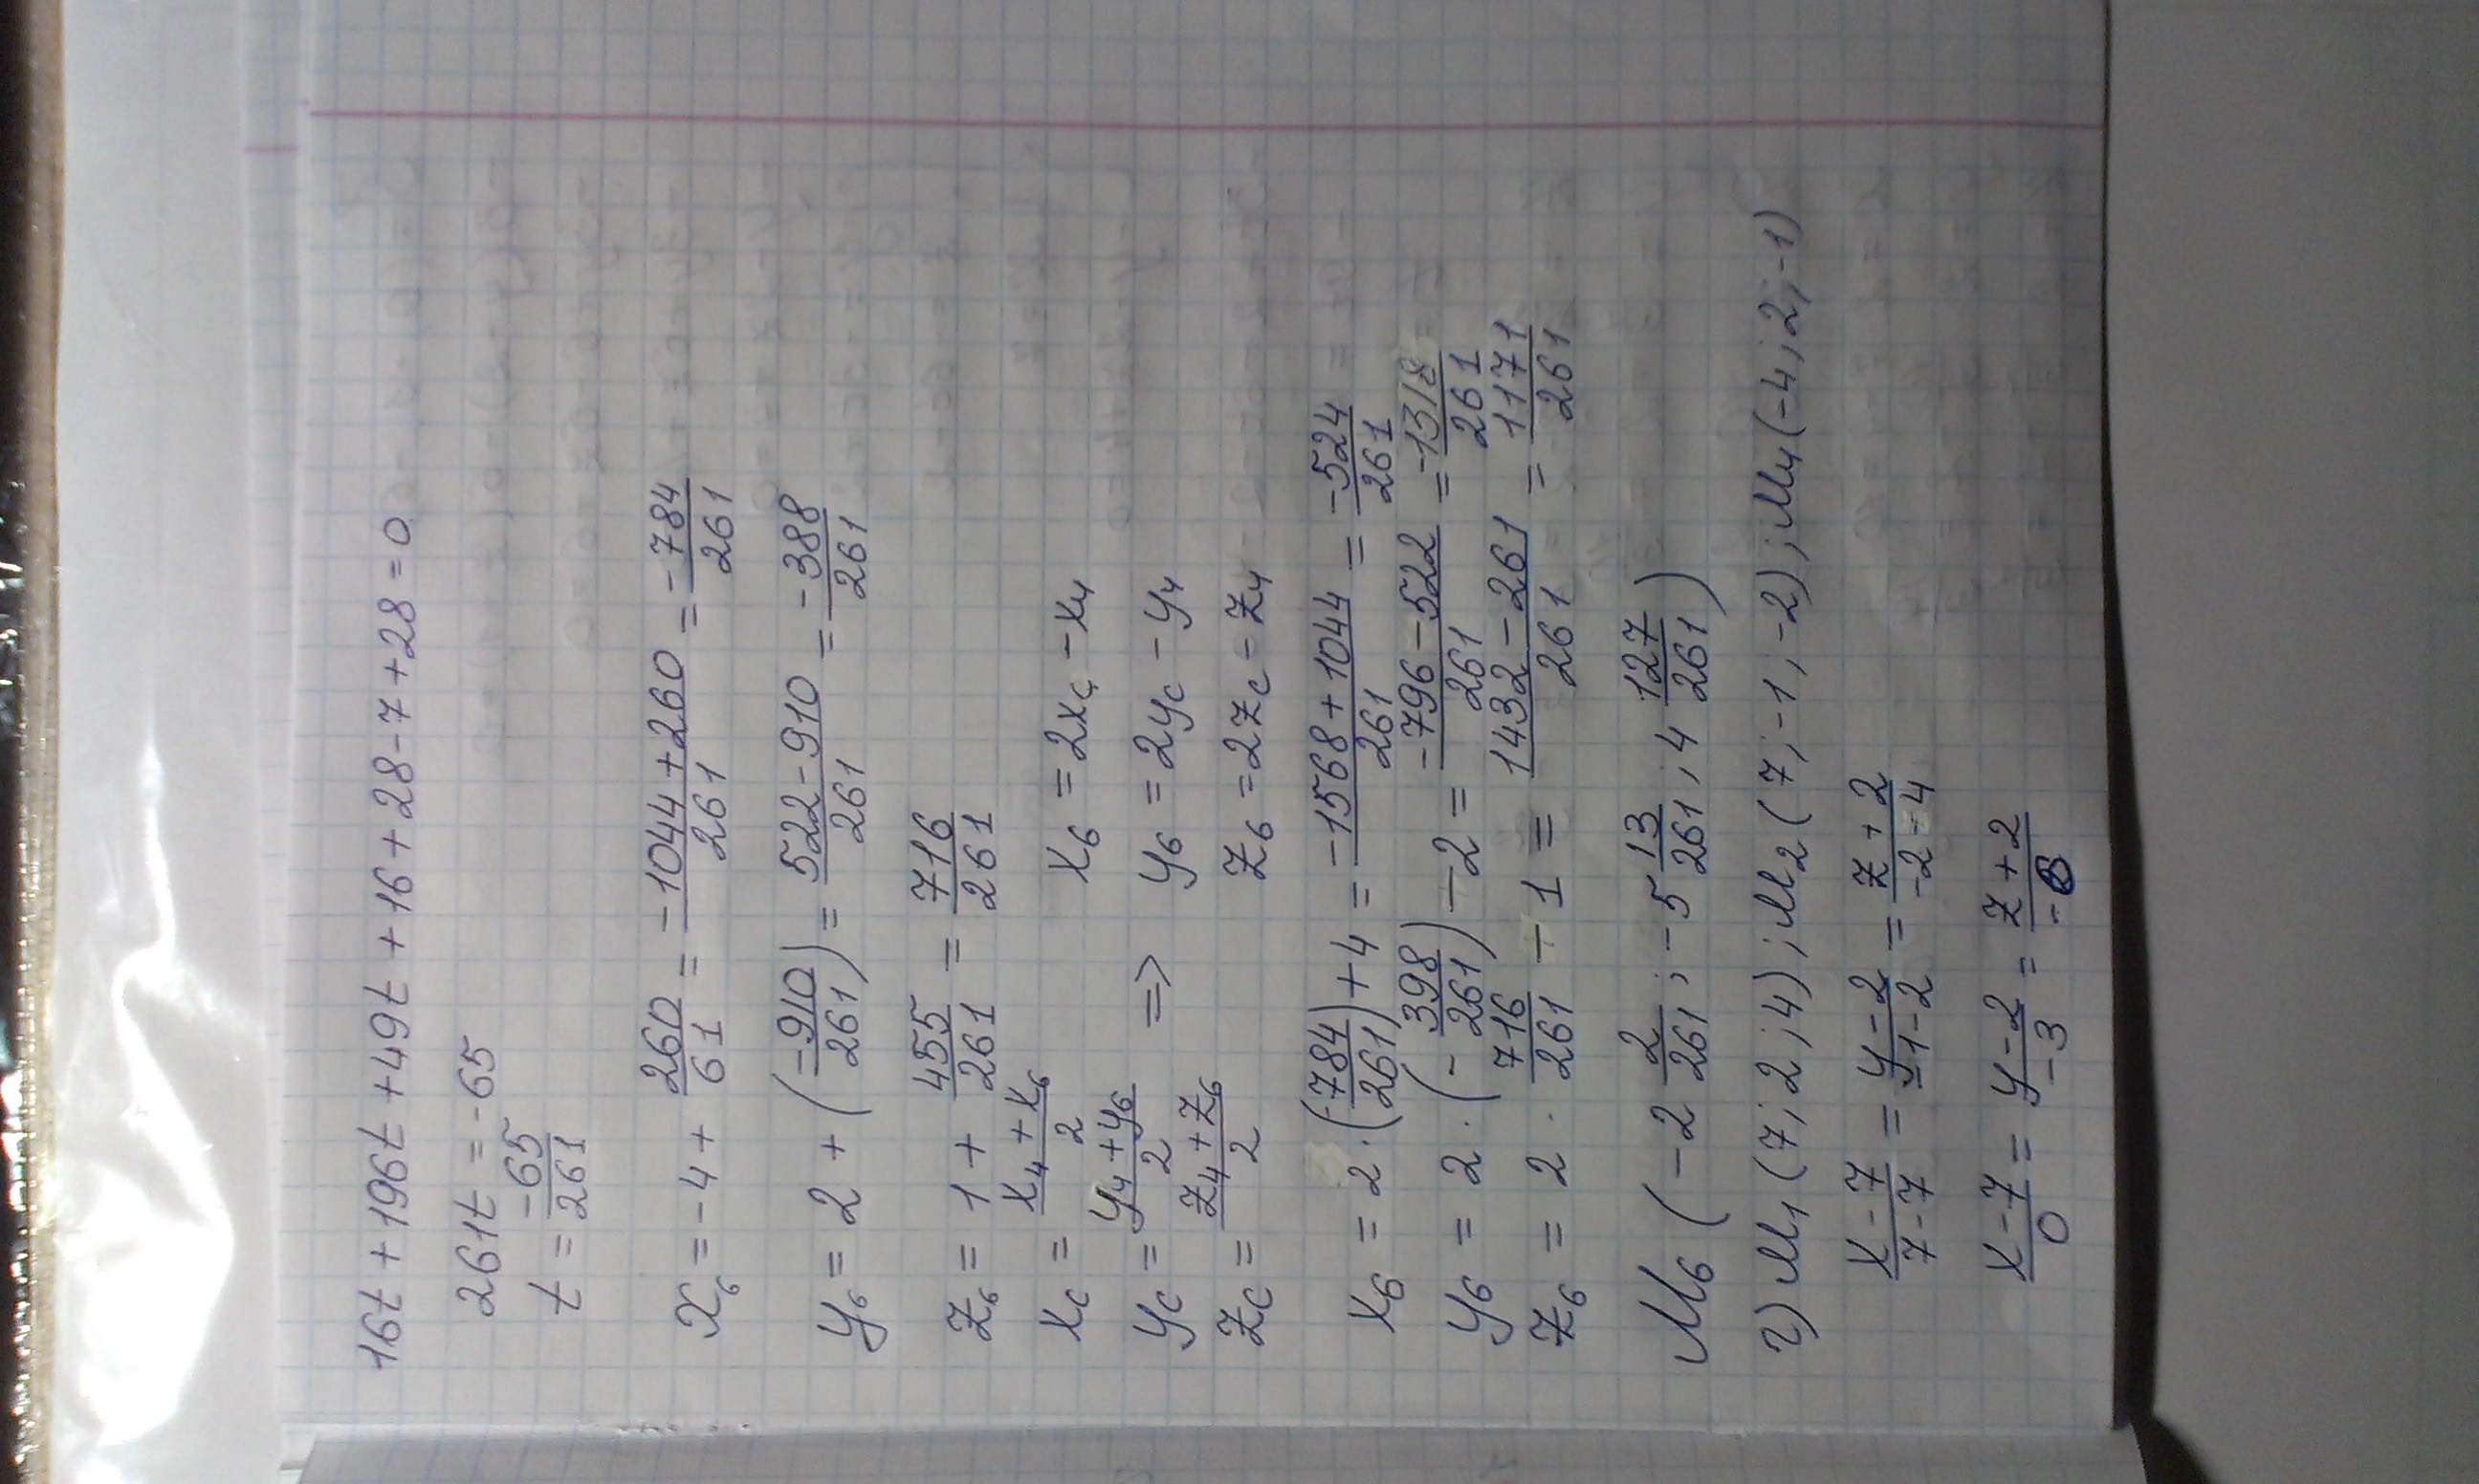 16t + 196t + 49t + 16 + 28 - 7 + 28 = 0
261t = -65
t = -65/261
x₆ = -4 + 260/61 = (-1044 + 260)/261 = -784/261
y₆ = 2 + (-910/261) = (522 - 910)/261 = -388/261
z₆ = 1 + 455/261 = 716/261
x_c = (x₄ + x₆)/2 x₆ = 2x_c - x₄
y_c = (y₄ + y₆)/2 => y₆ = 2y_c - y₄
z_c = (z₄ + z₆)/2 z₆ = 2z_c - z₄
x₆ = 2 · (-784/261) + 4 = (-1568 + 1044)/261 = -524/261
y₆ = 2 · (-398/261) - 2 = (-796 - 522)/261 = -1318/261
z₆ = 2 · 716/261 - 1 = (1432 - 261)/261 = 1171/261
M₆ (-2 2/261 ; -5 13/261 ; 4 127/261)
г) M₁ (7; 2; 4) ; M₂ (7; -1; -2) ; M₄ (-4; 2; -1)
(x - 7)/(7 - 7) = (y - 2)/(-1 - 2) = (z + 2)/(-2 - 4)
(x - 7)/0 = (y - 2)/-3 = (z + 2)/-6